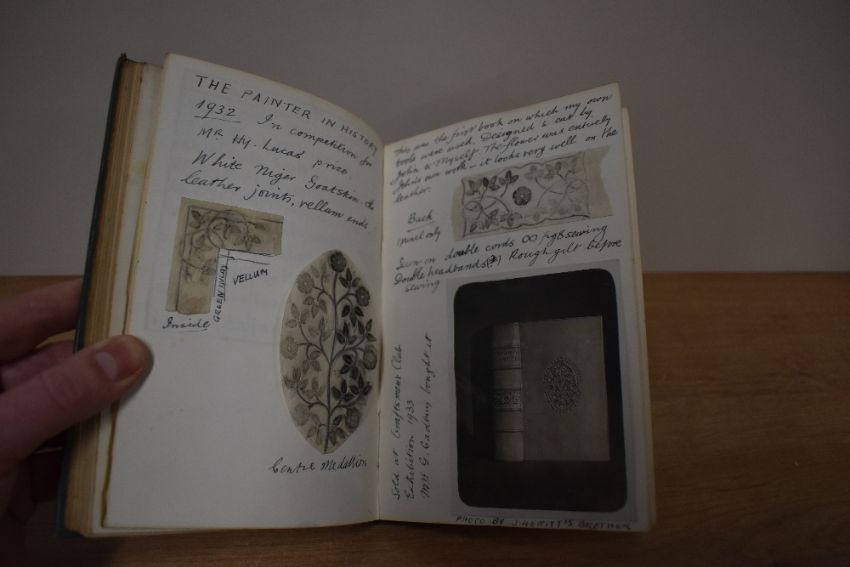 THE PAINTER IN HISTORY
1932 In competition for
Mr. Hy. Lucas prize
White Niger Goatskin
leather joints, vellum ends
VELLUM
GREEN INLAY
Inside
Centre Medallion
This was the first book on which my own
tools were used. Designed & cut by
John & Myself. The flower was entirely
John's own work – it looks very well on the
leather.
Back
only
Sewn on double cords sewing
Double headbands (2) Rough gilt before
sewing
Sold at Craftsmen Club
Exhibition 1933
G. Cadbury bought it
PHOTO BY J. HEWITT'S BROTHER